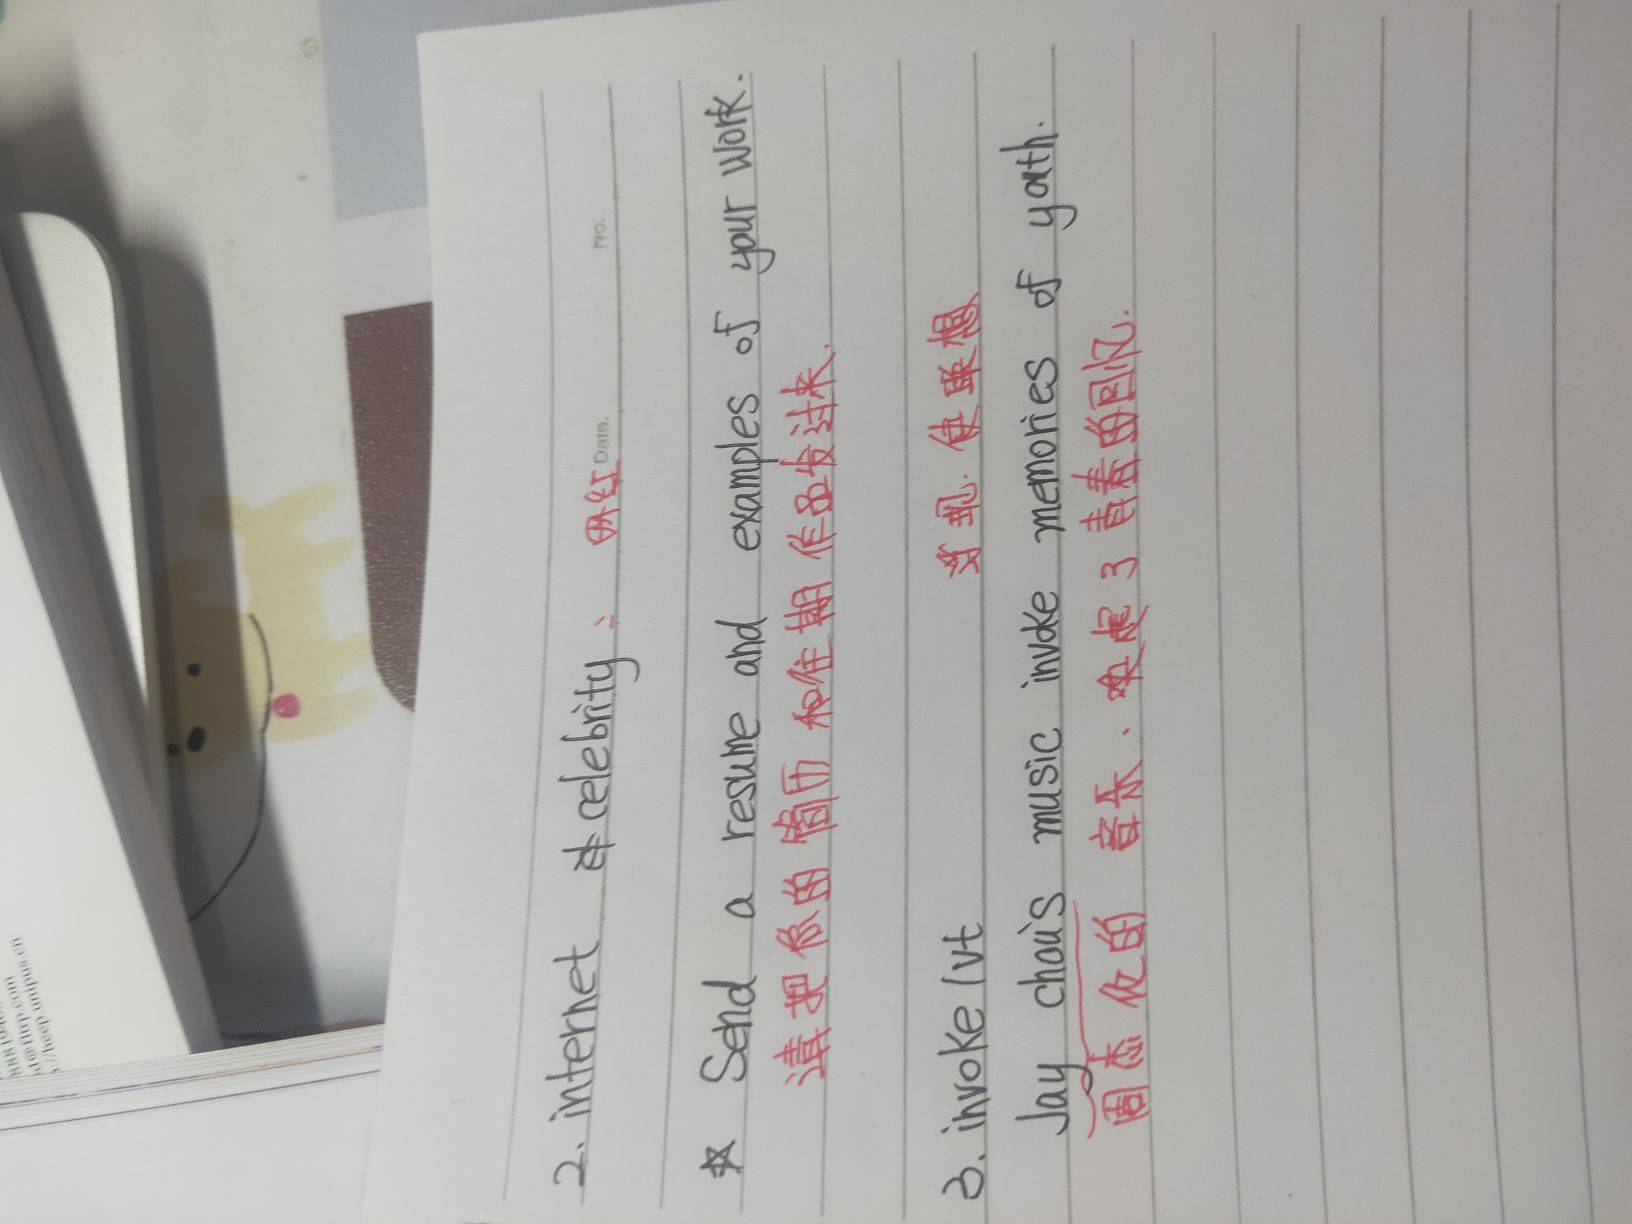 Date. No.
2. internet celebrity、 网红
☆ Send a resume and examples of your work.
请把你的简历和往期作品发过来.
3. invoke / vt 实现. 使联想
Jay chou's music invoke memories of yoth.
周杰伦的 音乐. 唤起了青春的回忆.
@fltrp.com
//heep.unipus.cn